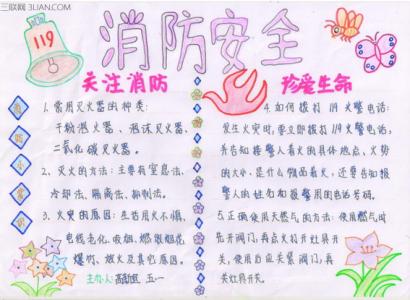 三联网 3LIAN.COM
119
消防安全
关注消防
1. 常用灭火器的种类:
干粉泡火器、泡沫灭火器、
二氧化碳灭火器。
2. 灭火的方法: 主要有窒息法、
冷却法、隔离法、抑制法。
3. 火灾的原因: 生活用火不慎、
电线老化、吸烟、燃放烟花
爆竹、燃火及其它原因。
主办人: 五一
珍爱生命
4. 如何拨打119火警电话:
发生火灾时,要立即拨打119火警电话,
并告知接警人着火的具体地点,火势
的大小,是什么物品着火,还要告知报
警人的姓名和报警用的电话号码。
5. 正确使用天然气的方法: 使用燃气时
先开阀门,再点火打开灶具开
关,使用后应关紧阀门,再
关灶具开关。